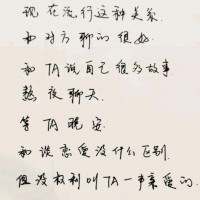 现在流行这种关系.
和对方聊的很好.
和TA说自己很多故事
熬夜聊天.
等TA晚安.
和谈恋爱没什么区别.
但没权利叫TA一声亲爱的.